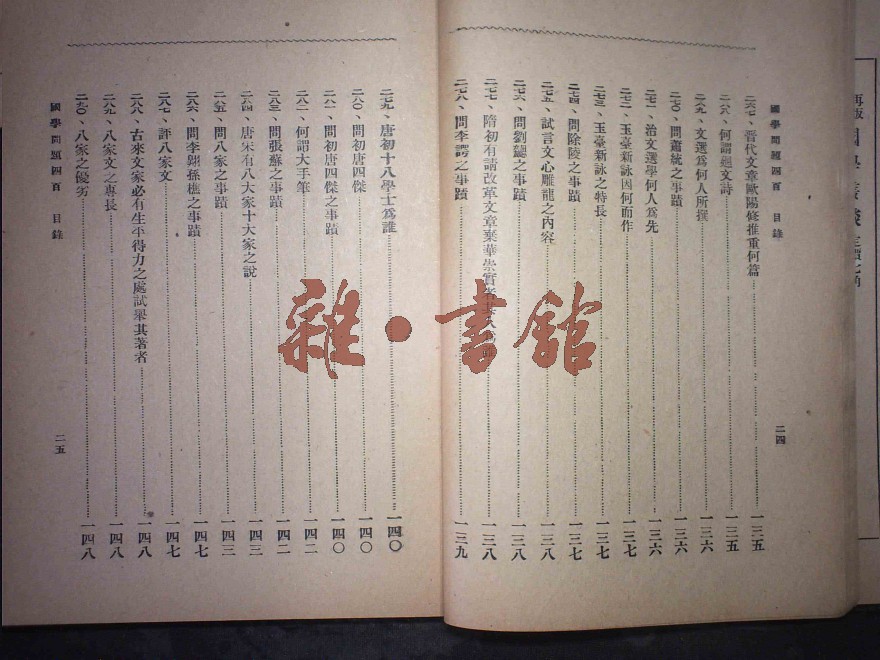 國學問題四百　目錄
二六七、晉代文章歐陽修推重何篇……一三五
二六八、何謂迴文詩……一三五
二六九、文選爲何人所撰……一三六
二七〇、問蕭統之事蹟……一三六
二七一、治文選學何人爲先……一三六
二七二、玉臺新詠因何而作……一三七
二七三、玉臺新詠之特長……一三七
二七四、問除陵之事蹟……一三七
二七五、試言文心雕龍之內容……一三八
二七六、問劉勰之事蹟……一三八
二七七、隋初有請改革文章棄華崇實者其人……一三八
二七八、問李諤之事蹟……一三九
二四
二七九、唐初十八學士爲誰……一四〇
二八〇、問初唐四傑……一四〇
二八一、問初唐四傑之事蹟……一四〇
二八二、何謂大手筆……一四二
二八三、問張蘇之事蹟……一四二
二八四、唐宋有八大家十大家之說……一四三
二八五、問八家之事蹟……一四三
二八六、問李翱孫樵之事蹟……一四七
二八七、評八家文……一四七
二八八、古來文家必有生平得力之處試舉其著者……一四八
二八九、八家文之專長……一四八
二九〇、八家之優劣……一四八
國學問題四百　目錄
二五
雜·書館